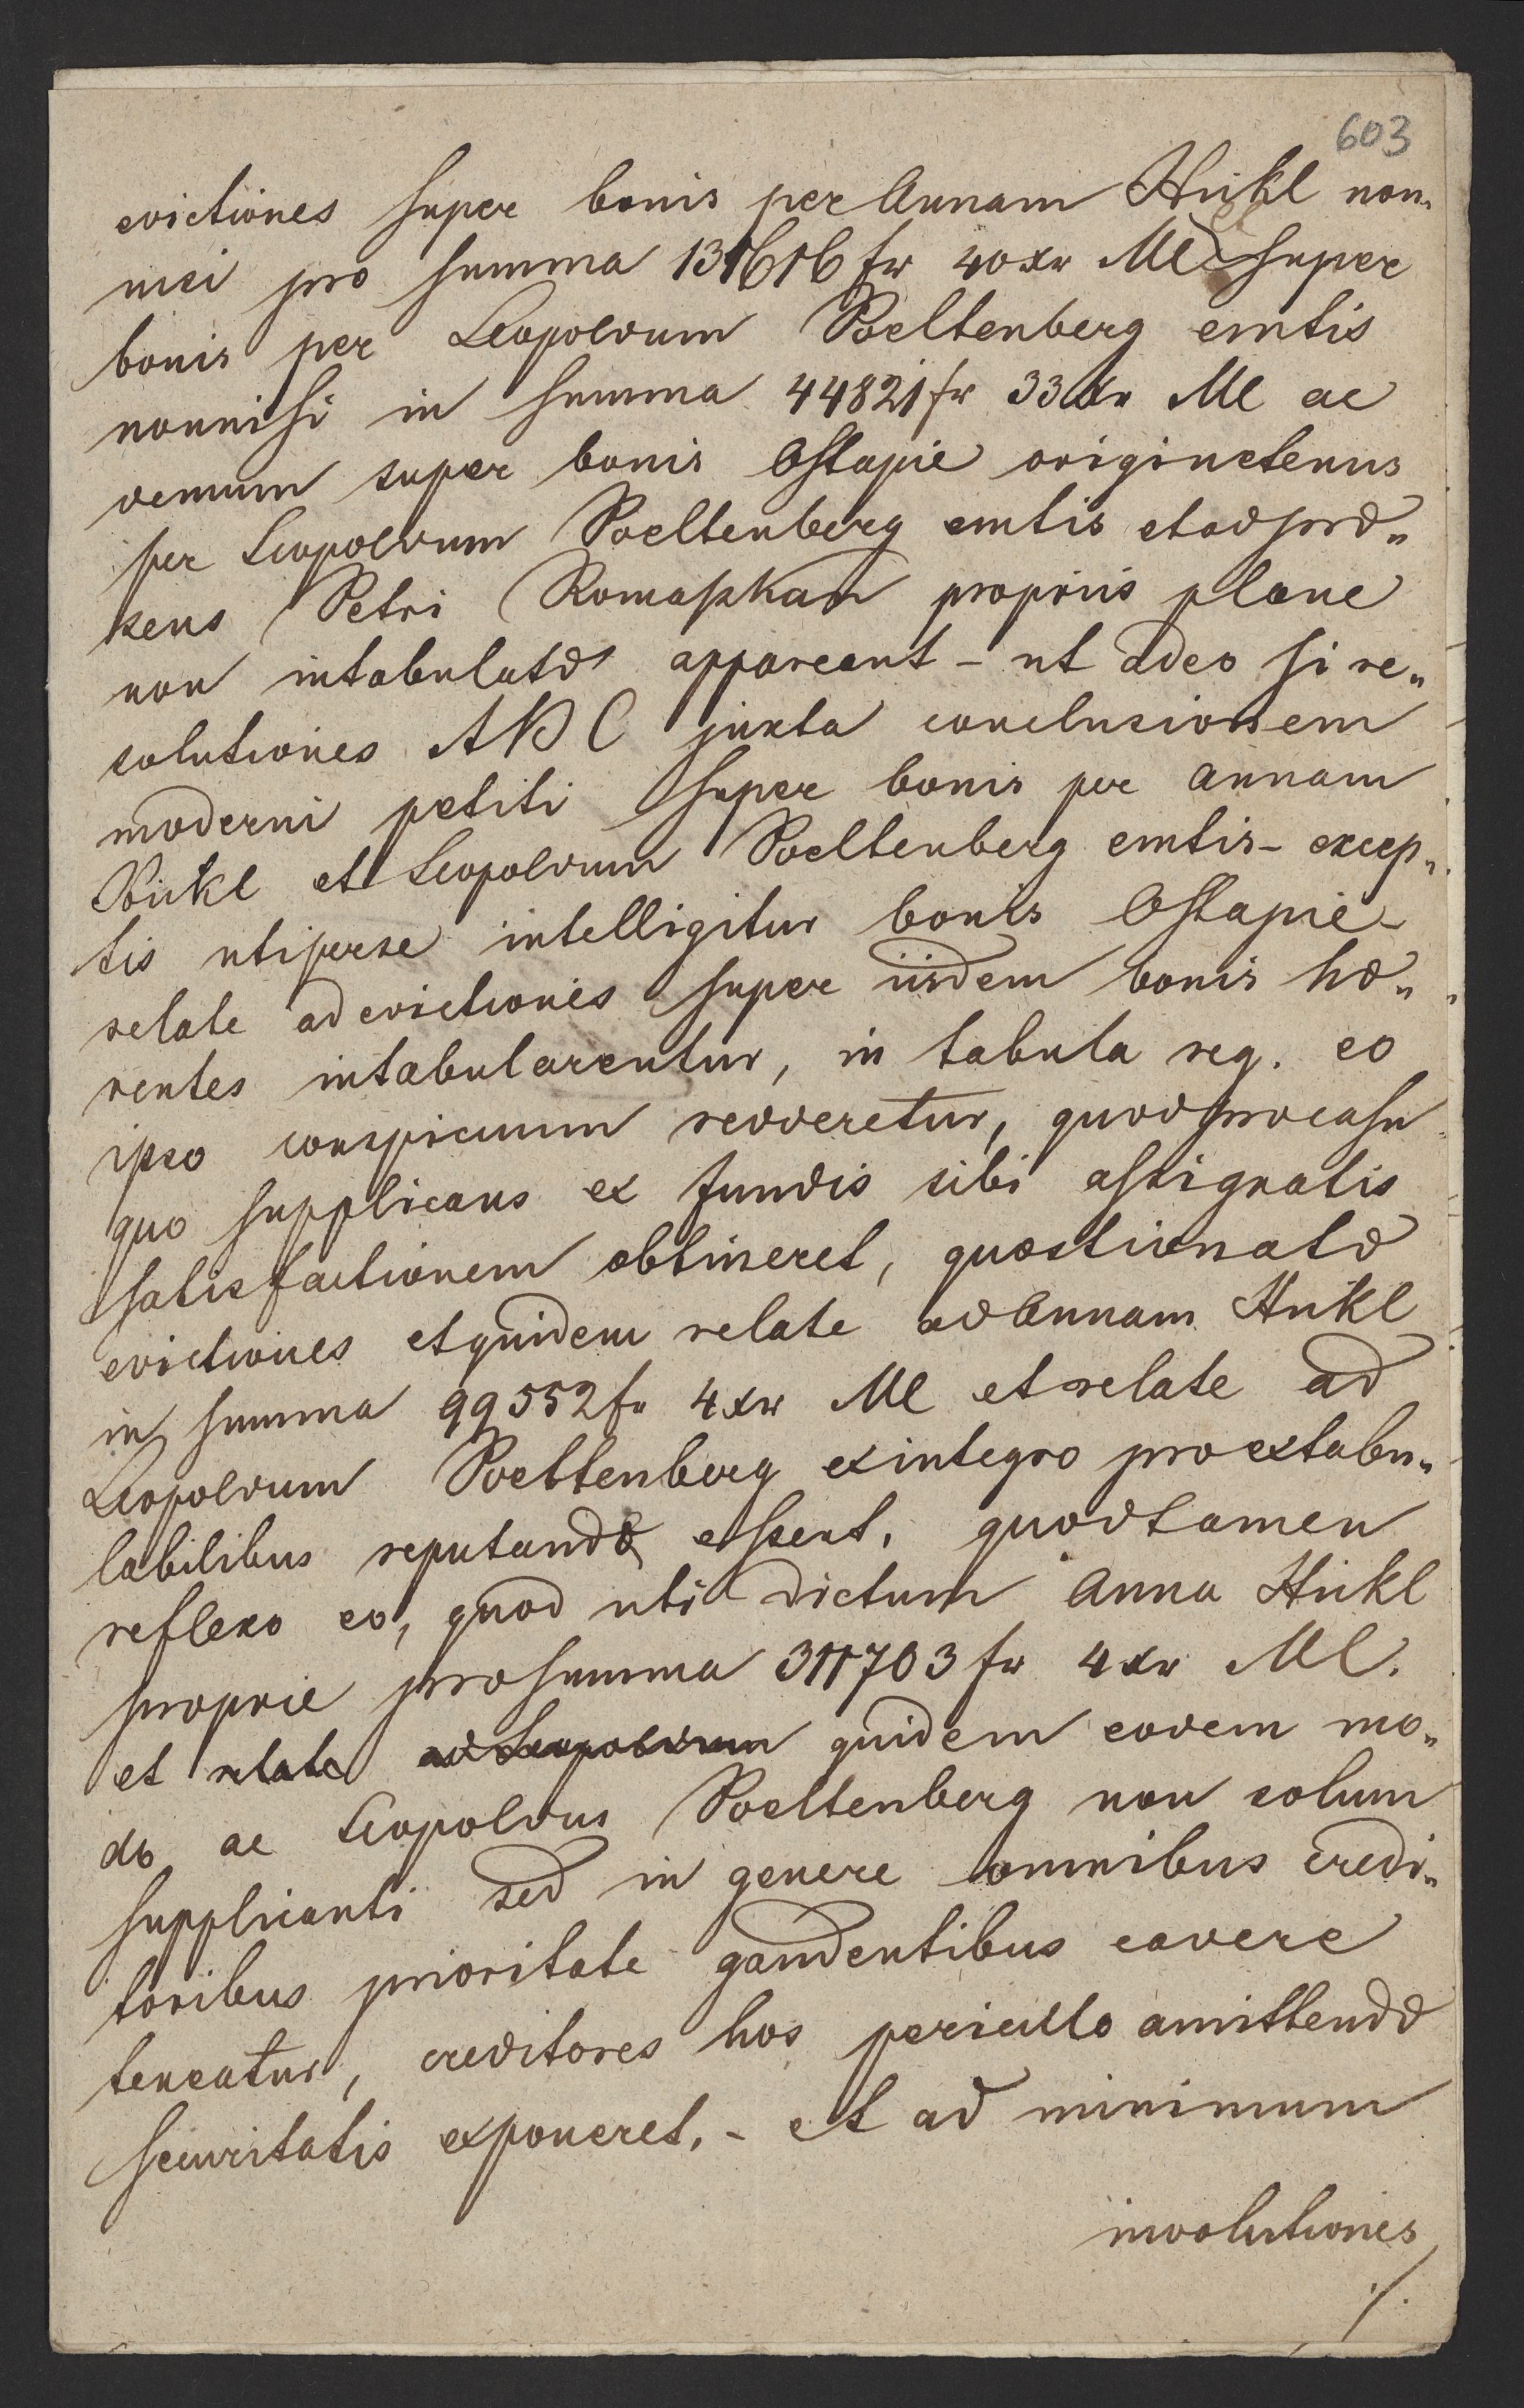 603
evictiones super bonis per Annam Hikl non„
nisi pro summa 131616 fr 40 xr MC super
bonis per Leopoldum Poeltenberg emtis
nonnisi in summa 44821 fr 33 xr MC ac
demum super bonis Ostapie originetenus
per Leopoldum Poeltenberg emtis et ad præ„
sens Petri Romaszkan propriis plane
non intabulatæ appareant – ut adeo si re„
solutiones A B C juxta conclusionem
moderni petiti super bonis per Annam
Hikl et Leopoldum Poeltenberg emtis – excep„
tis uti per se intelligitur bonis Ostapie –
relate ad evictiones super iisdem bonis hæ„
rentes intabularentur, in tabula reg. eo
ipso conspicuum redderetur, quod pro casu
quo supplicans ex fundis sibi assignatis
satisfactionem obtineret, quæstionatæ
evictiones et quidem relate ad Annam Hikl
in summa 99552 fr 4 xr MC et relate ad
Leopoldum Poeltenberg ex integro pro extabu„
labilibus reputandæ essent, quod tamen
reflexo eo, quod uti dictum Anna Hikl
proprie pro summa 311703 fr 4 xr MC.
et relate ad Leopoldum quidem eodem mo„
do ac Leopoldus Poeltenberg non solum
supplicanti sed in genere omnibus credi„
toribus prioritate gaudentibus cavere
teneatur, creditores hos periculo amittendæ
securitatis exponeret. – et ad minimum
involutiones
./.